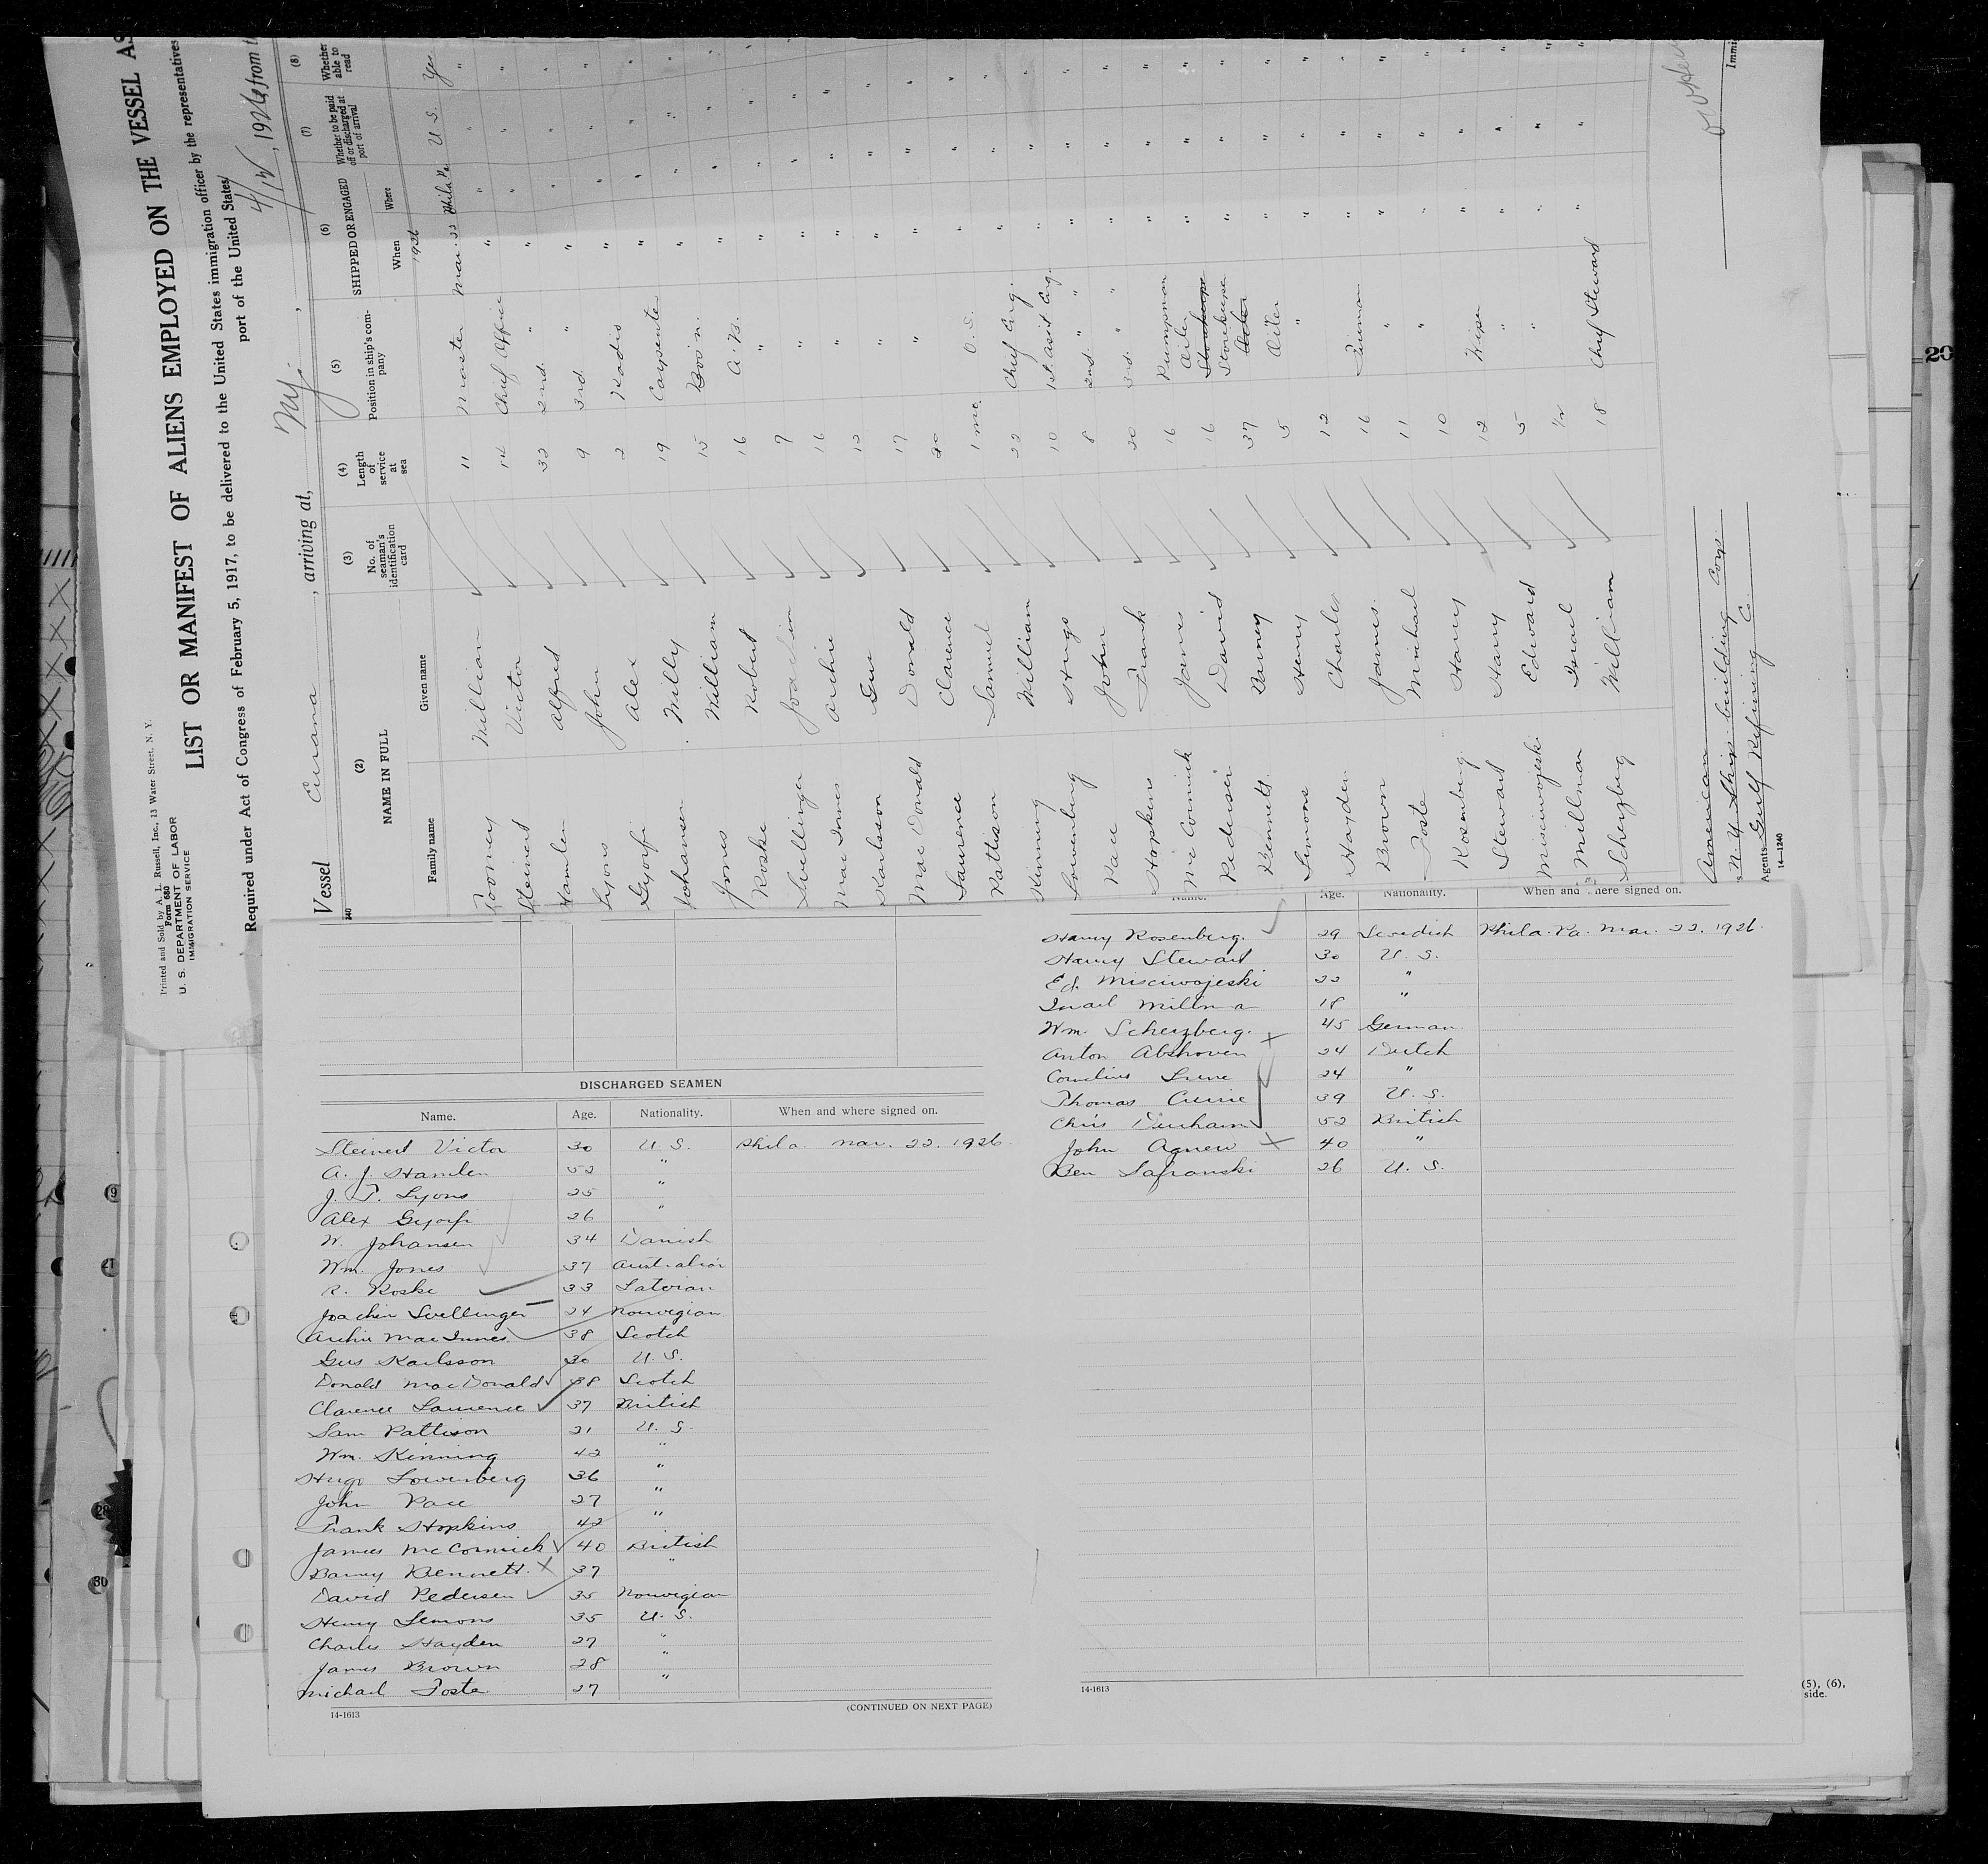 Printed and Sold by A. L. Russell, Inc., 13 Water Street, N. Y.
Form 680
U. S. DEPARTMENT OF LABOR
IMMIGRATION SERVICE
LIST OR MANIFEST OF ALIENS EMPLOYED ON THE VESSEL AS
Required under Act of Congress of February 5, 1917, to be delivered to the United States immigration officer by the representatives
port of the United States
Vessel , arriving at, N.Y. , 4/12, 1926, from
(2) (3) (4) (5) (6) (7) (8)
NAME IN FULL No. of seaman's identification card Length of service at sea Position in ship's company SHIPPED OR ENGAGED Whether to be paid off or discharged at port of arrival Whether able to read
Family name Given name When Where
1926
William 11 Master Mar. 22 Phila Pa U S. Yes
Steinert Victor 14 Chief Officer " " " "
Hamlen Alfred 32 2nd. " " " " "
Lyons John 9 3rd. " " " " "
Gyorfi Alex 2 Radio " " " "
Johansen Willy 19 Carpenter " " " "
Jones William 15 Bos'n. " " " "
Roske Robert 16 A. B. " " " "
Svellinger Joachim 7 " " " " "
Mac Innes Archie 16 " " " " "
Karlsson Gus 12 " " " " "
Mac Donald Donald 17 " " " " "
Laurence Clarence 20 " " " "
Pattison Samuel 1 mo. O. S. " " " "
Kinning William 22 Chief Eng. " " " "
Lowenberg Hugo 10 1st. Asst Eng. " " " "
Pace John 8 2nd. " " " " "
Hopkins Frank 20 3rd. " " " " "
Mc Cormick James 16 Pumpman " " " "
Pedersen David 16 Oiler " " " "
Bennett Barney 37 Storekeeper " " " "
Lemons Henry 5 Oiler " " " "
Hayden Charles 12 " " " " "
Brown James. 16 Fireman " " " "
Foste Michael 11 " " " " "
Rosenberg Harry 10 " " " " "
Stewart Harry 12 Wiper " " " "
Misciwojeski Edward 5 " " " " "
Millman Israel 1/2 " " " " "
Scherzberg William 18 Chief Steward " " " "
American Ship building Corp.
Agents Gulf Refining Co.
14—1240
Immi
DISCHARGED SEAMEN
Name. Age. Nationality. When and where signed on.
Steinert Victor 30 U S. Phila Mar. 22. 1926.
A. J. Hamlen 52 "
J. T. Lyons 25 "
Alex Gyorfi 26 "
W. Johansen 34 Danish
Wm. Jones 37 Australian
R. Roske 33 Latvian
Joachim Svellinger 24 Norwegian
Archie MacInnes. 38 Scotch
Gus Karlsson 30 U. S.
Donald MacDonald 38 Scotch
Clarence Laurence 37 British
Sam Pattison 21 U. S.
Wm. Kinning 42 "
Hugo Lowenberg 36 "
John Pace 27 "
Frank Hopkins 42 "
James McCormick 40 British
Barney Bennett. 37 "
David Pedersen 35 Norwegian
Henry Lemons 35 U. S.
Charles Hayden 27 "
James Brown 28 "
Michael Foste 27
14-1613 (CONTINUED ON NEXT PAGE)
Name. Age. Nationality. When and where signed on.
Harry Rosenberg. 29 Swedish Phila. Pa. Mar. 22. 1926.
Harry Stewart 30 U. S.
Ed. Misciwojeski 22 "
Israel Millman 18 "
Wm. Scherzberg. 45 German
Anton Abshoven 24 Dutch
Cornelius 24 "
Thomas 39 U. S.
Chris Denham 52 British
John Agnew 40 "
Ben Safranski 26 U. S.
14-1613
(5), (6),
side.
20